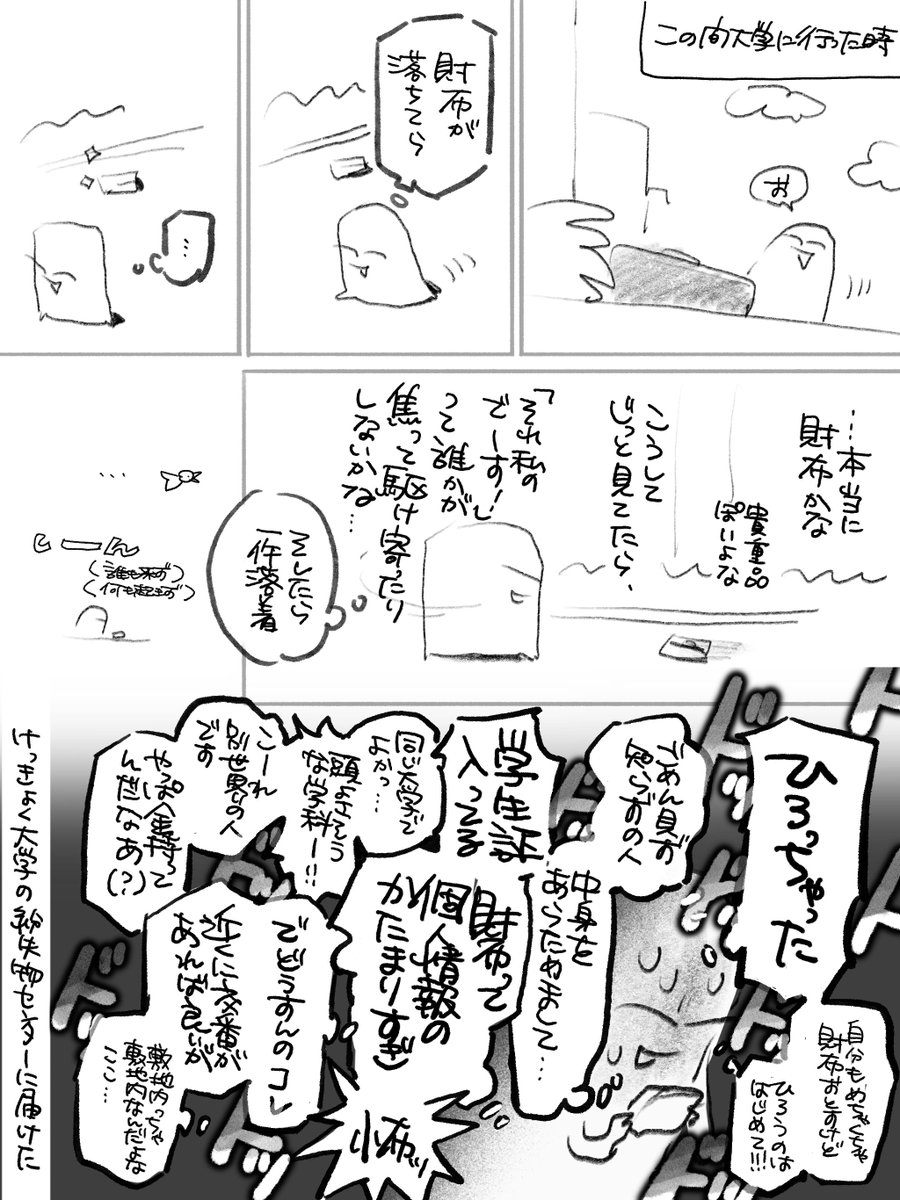 この間大学に行った時
お
財布が
落ちてら
…
…本当に
財布かな
貴重品
ぽいよな
こうして
じっと見てたら、
「それ私の
でーす!」
って、誰かが
焦って駆け寄ったり
しないかな…
そしたら
一件落着
…
しーん
(誰も来ず)
(何も起きず)
ひろっちゃった
自分もめちゃくちゃ
財布おとすけど
ひろうのは
はじめて!!!
ごめん見ず
知らずの人
中身を
あらためまして…
学生証
入ってる
財布って
個人情報の
かたまりすぎ
怖ッ
同じ大学で
よかっ…
頭よさそう
な学科ー!!
こーれ
別世界の人
です
やっぱ金持って
んだなあ(?)
でどうすんのコレ
近くに交番が
あれば良いが
敷地内っちゃ
敷地内なんだよな
ここ…
ドドドドドドドドド
けっきょく大学の紛失物センターに届けた